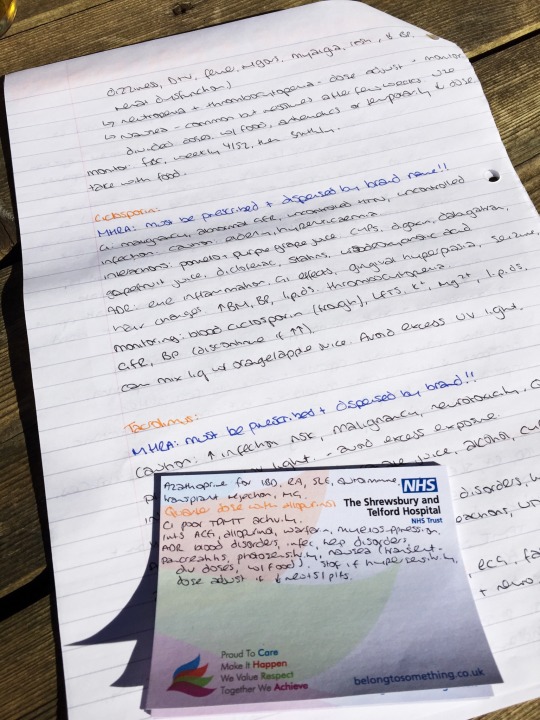 dizziness, D+V, fever, rigors, myalgia, rash, ↓ BP,
renal dysfunction)
↳ neutropenia + thrombocytopenia - dose adjust + monitor
↳ nausea - common but resolves after few weeks use
divided doses, w/ food, antiemetics or temporarily ↓ dose
monitor: FBC, weekly 4/52, then 3mthly.
take with food.
Ciclosporin:
MHRA: must be prescribed + dispensed by brand name!!
CI: malignancy, abnormal GFR, uncontrolled HTN, uncontrolled
infection. caution: elderly, hyperuricaemia
interactions: pomelo, purple grape juice, CNIs, digoxin, dabigatran,
grapefruit juice, diclofenac, statins, ursodeoxycholic acid
ADR: eye inflammation, GI effects, gingival hyperplasia, seizure,
hair changes, ↑BM, BP, lipids, thrombocytopenia.
monitoring: blood ciclosporin (trough), LFTs, K⁺, Mg²⁺, lipids,
GFR, BP (discontinue if ↑↑).
can mix liq w/ orange/apple juice. Avoid excess UV light.
Tacrolimus:
MHRA: must be prescribed + dispensed by brand!!
Caution: ↑ infection risk, malignancy, neurotoxicity,
light. - avoid excess exposure
juice, alcohol,
disorders,
reactions,
ECG,
+ neuro
Azathioprine for IBD, RA, SLE, autoimmune,
transplant rejection, MG.
Quarter dose with allopurinol
CI poor TPMT activity.
Ints ACEi, allopurinol, warfarin, myelosuppression.
ADR blood disorders, infec, hep disorders,
pancreatitis, photosensitivity, nausea (transient -
div doses, w/ food). Stop if hypersensitivity,
dose adjust if ↓ neuts / plts.
NHS
The Shrewsbury and
Telford Hospital
NHS Trust
Proud To Care
Make It Happen
We Value Respect
Together We Achieve
belongtosomething.co.uk